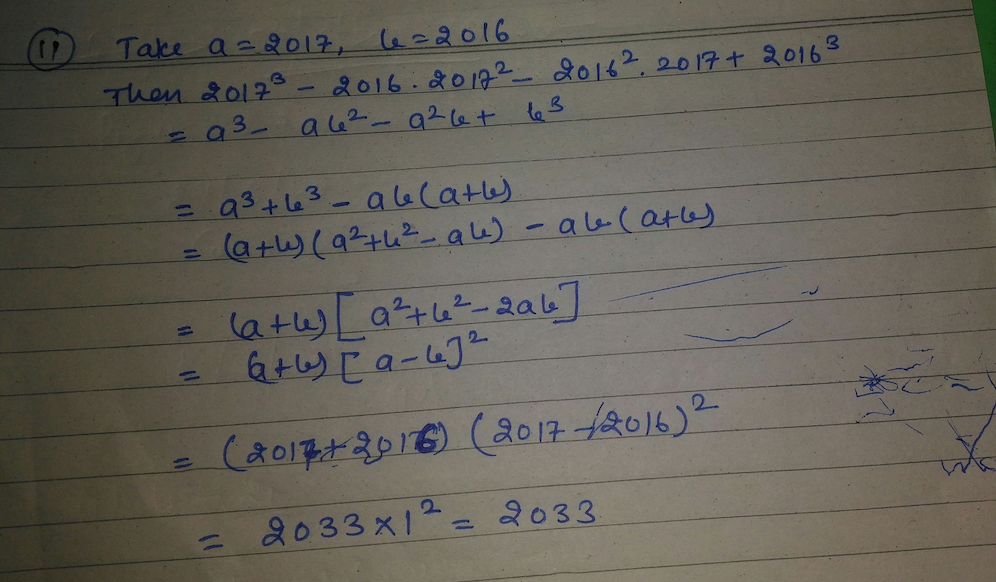 (11) Take a = 2017, b = 2016
Then 2017³ - 2016 . 2017² - 2016² . 2017 + 2016³
= a³ - ab² - a²b + b³
= a³ + b³ - ab(a+b)
= (a+b)(a²+b² - ab) - ab(a+b)
= (a+b)[a²+b²-2ab]
= (a+b)[a-b]²
= (2017+2016) (2017-2016)²
= 2033 × 1² = 2033